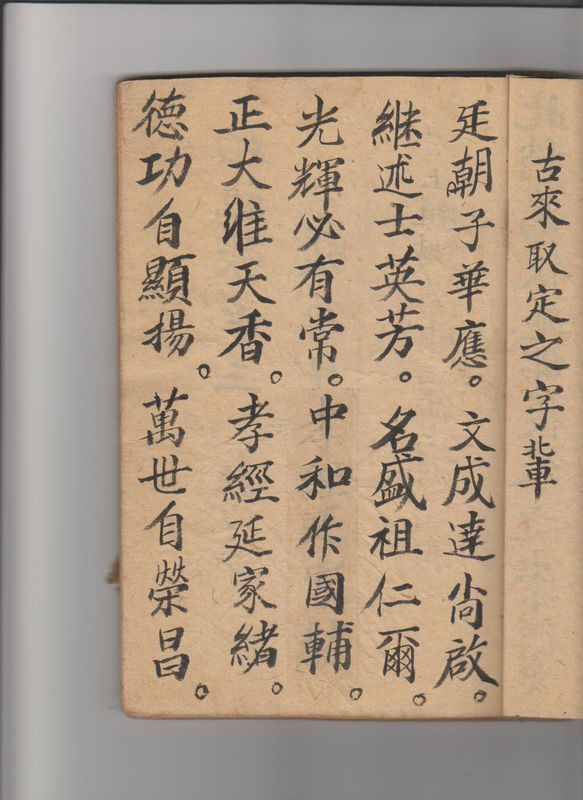 古來取定之字軰
廷朝子華應。文成達尚啟。
継述士英芳。名盛祖仁爾。
光輝必有常。中和作國輔。
正大維天香。孝經延家緒。
德功自顯揚。萬世自榮昌。